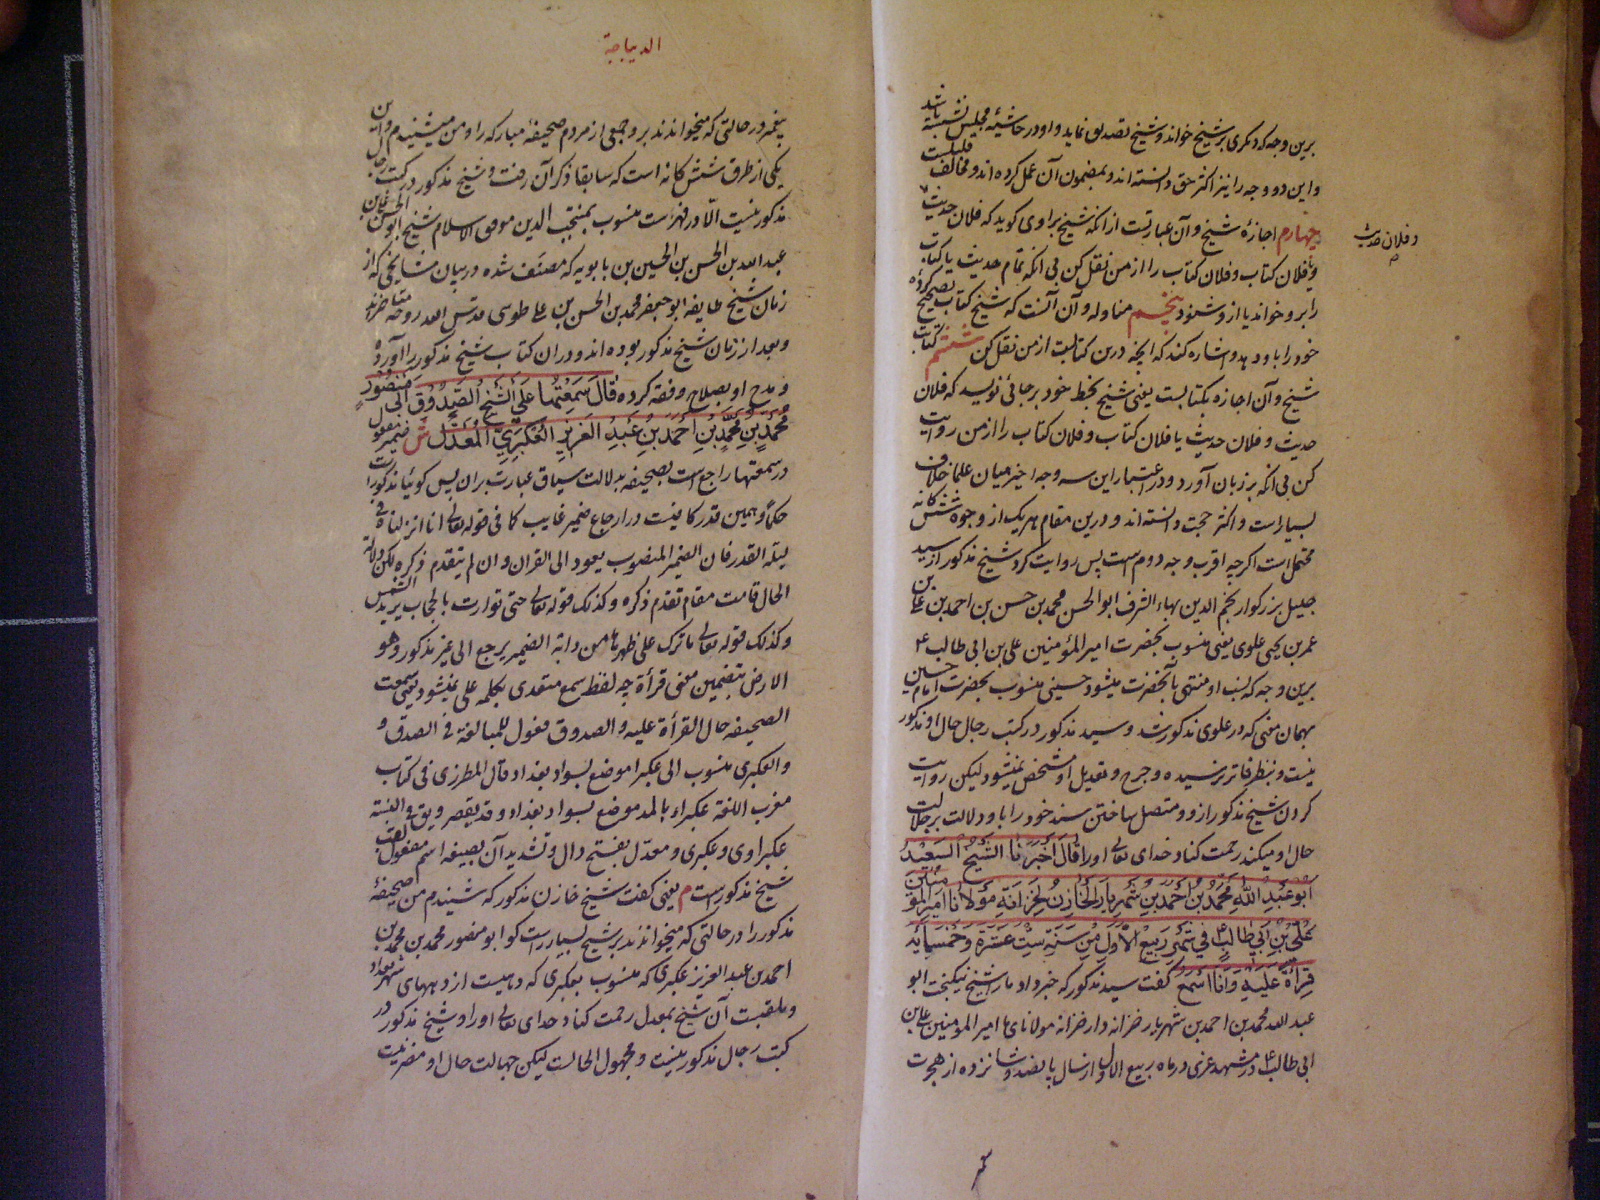 برین وجه که دیگری بر شیخ خواند و شیخ تصدیق نماید و او در حاشیه مجلس نشسته باشد
و این دو وجه را نیز اکثر حق دانسته اند و بمضمون آن عمل کرده اند و مخالف قلیلست
چهارم اجازهٔ شیخ و آن عبارتست از انکه شیخ براوی کوید که فلان حدیث
و فلان حدیث
و فلان کتاب و فلان کتاب را از من نقل کن بی انکه تمام حدیث یا کتاب
را برو خواند یا ازو شنود پنجم مناوله و آن آنست که شیخ کتاب تصحیح کرده
خود را باو دهد و اشاره کند که انچه درین کتابست از من نقل کن ششم کتابت
شیخ و آن اجازه بکتابست یعنی شیخ بخط خود بر جائی نویسد که فلان
حدیث و فلان حدیث یا فلان کتاب و فلان کتاب را از من روایت
کن بی انکه بر زبان آورد و در اعتبار این سه وجه اخیر میان علما خلاف
بسیار است و اکثر حجت دانسته اند و درین مقام هر یک از وجوه شش کانه
محتمل است اکرچه اقرب وجه دوم است پس روایت کرد شیخ مذکور از سید
جلیل بزرکوار نجم الدین بهاء الشرف ابو الحسن محمد بن حسن بن احمد بن علی بن
عمر بن یحیی علوی یعنی منسوب بحضرت امیر المؤمنین علی بن ابی طالب ع
برین وجه که نسب او منتهی بآنحضرت میشود حسینی منسوب بحضرت امام حسین
بهمان معنی که در علوی مذکور شد و سید مذکور در کتب رجال حال او مذکور
نیست و بنظر قاتر نرسیده و جرح و تعدیل او مشخص نمیشود لیکن روایت
کردن شیخ مذکور ازو و متصل ساختن سند خود را باو دلالت بر جلالت
حال او میکند رحمت کناد خدای تعالی او را قَالَ أَخْبَرَنَا الشَّيْخُ السَّعِيْدُ
أَبُو عَبْدِ اللّهِ مُحَمَّدُ بْنُ أَحْمَدَ بْنِ شَهْرِيَارَ الْخَازِنُ لِخِزَانَةِ مَوْلَانَا أَمِيرِ الْمُؤْمِنِينَ
عَلِيِّ بْنِ أَبِي طَالِبٍ ع فِي شَهْرِ رَبِيعِ الْأَوَّلِ مِنْ سَنَةِ سِتَّ عَشْرَةَ وَ خَمْسِمِايَة
قِرَاءَةً عَلَيْهِ وَ أَنَا أَسْمَعُ کفت سید مذکور که خبر داد ما را شیخ نیکبخت ابو
عبد الله محمد بن احمد بن شهریار خزانه دار خزانه مولای ما امیر المؤمنین علی بن
ابی طالب ع در مشهد غری در ماه ربیع الاول از سال پانصد و شانزده از هجرت
الدیباجة
پیغمبر در حالتی که میخواندند برو جمعی از مردم صحیفهٔ مبارکه را و من میشنیدم و این
یکی از طرق شش کانه است که سابقا ذکر آن رفت و شیخ مذکور در کتب رجال
مذکور نیست الّا در فهرست منسوب بمنتجب الدین موفق الاسلام شیخ ابو الحسن علی بن
عبید الله بن الحسن بن الحسین بن بابویه که مصنَف شده در بیان مشایخی که از
زمان شیخ طایفه ابو جعفر محمد بن الحسن بن علی طوسی قدس الله روحه معاصر
و بعد از زمان شیخ مذکور بوده اند و دران کتاب شیخ مذکور را آورده
و مدح او بصلاح و فقه کرده قَالَ سَمِعْتُهَا عَلَى الشَّيْخِ الصَّدُوْقِ أَبِی مَنْصُوْرٍ
مُحَمَّدِ بْنِ مُحَمَّدِ بْنِ أَحْمَدَ بْنِ عَبْدِ الْعَزِيزِ الْعُكْبَرِيِّ الْمُعَدَّلِ ش ضمیر مفعول
در سمعتها راجع است بصحیفه بدلالت سیاق عبارت بران پس کوئیا مذکور است
حکما و همین قدر کافیست در ارجاع ضمیر غایب کما فی قوله تعالی انا انزلناه فی
لیلة القدر فان الضمیر المنصوب یعود الی القران و ان لم یتقدم ذکره لکن دلالة
الحال قامت مقام تقدم ذکره و کذلک قوله تعالی حتی توارت بالحجاب یرید الشمس
و کذلک قوله تعالی ما ترک علی ظهرها من دابة الضمیر یرجع الی غیر مذکور و هو
الارض بتضمین معنی قرأة چه لفظ سمع متعدی بکلمه علی نمیشود یعنی سمعت
الصحیفه حال القرأة علیه و الصدوق فعول للمبالغة فی الصدق و
و العکبری منسوب الی عکبرا موضع بسواد بغداد قال المطرزی فی کتاب
مغرب اللغة عکبراء بالمد موضع بسواد بغداد و قد یقصر و یق فی النسبة
عکبراوی و عکبری و معدّل بفتح دال و تشدید آن بصیغه اسم مفعول لقب
شیخ مذکور است م یعنی کفت شیخ خازن مذکور که شنیدم من صحیفهٔ
مذکور را در حالتی که میخواندند بر شیخ بسیار راست کو ابو منصور محمد بن محمد بن
احمد بن عبد العزیز عکبری که منسوب بعکبری که دهیست از دههای شهر بغداد
و ملقبست آن شیخ بمعدل رحمت کناد خدای تعالی او را و شیخ مذکور در
کتب رجال مذکور نیست و مجهول الحالست لیکن جهالت حال او مضر نیست